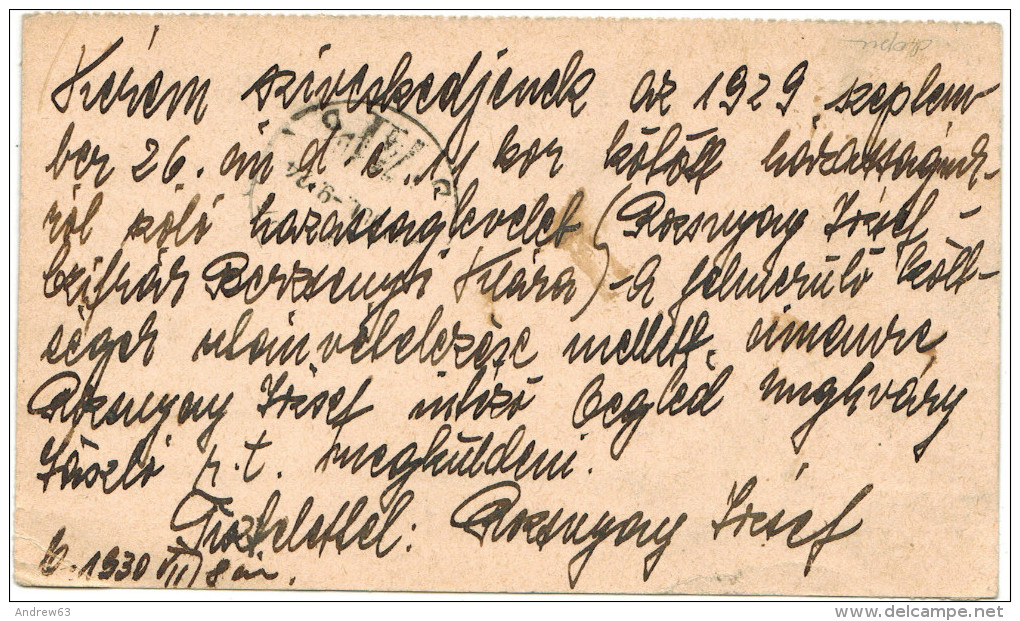 Kérem sziveskedjenek az 1929 szeptem-
ber 26.-án d. e. 11 kor kötött házasságunk-
ról szóló házasságlevelet (Rozsnyay József –
Czifrár Berzsenyi Klára) -a felmerülő költ-
ségek utánvételezése mellett, címemre
Rozsnyay József intéző Cegléd Unghváry
László r. t. megküldeni.
Tisztelettel: Rozsnyay József
C. 1930 VII 8 án.
Andrew63
delcampe.net